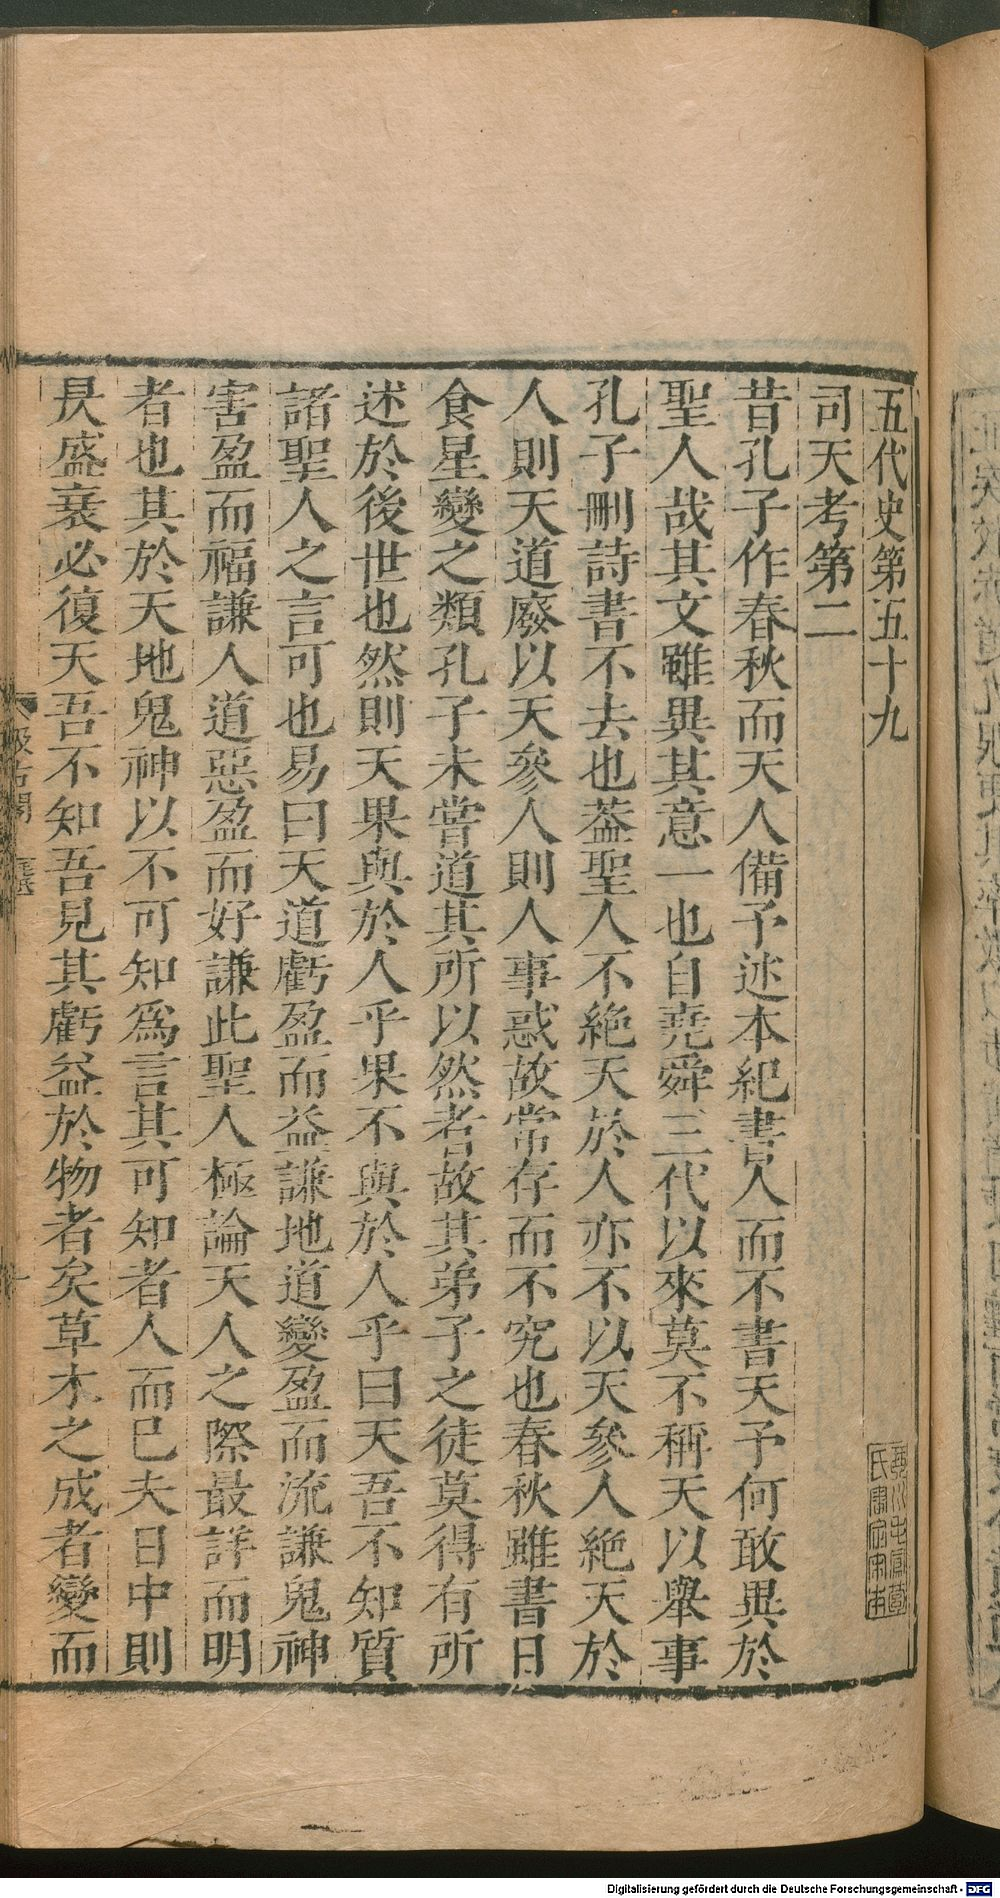 五代史第五十九
司天考第二
昔孔子作春秋而天人備予述本紀書人而不書天予何敢異於
聖人哉其文雖異其意一也自堯舜三代以來莫不稱天以舉事
孔子刪詩書不去也葢聖人不絶天於人亦不以天參人絶天於
人則天道廢以天參人則人事惑故常存而不究也春秋雖書日
食星變之類孔子未嘗道其所以然者故其弟子之徒莫得有所
述於後世也然則天果與於人乎果不與於人乎曰天吾不知質
諸聖人之言可也易曰天道虧盈而益謙地道變盈而流謙鬼神
害盈而福謙人道惡盈而好謙此聖人極論天人之際最詳而明
者也其於天地鬼神以不可知爲言其可知者人而已夫日中則
昃盛衰必復天吾不知吾見其虧益於物者矣草木之成者變而
汲古閣
Digitalisierung gefördert durch die Deutsche Forschungsgemeinschaft - DFG